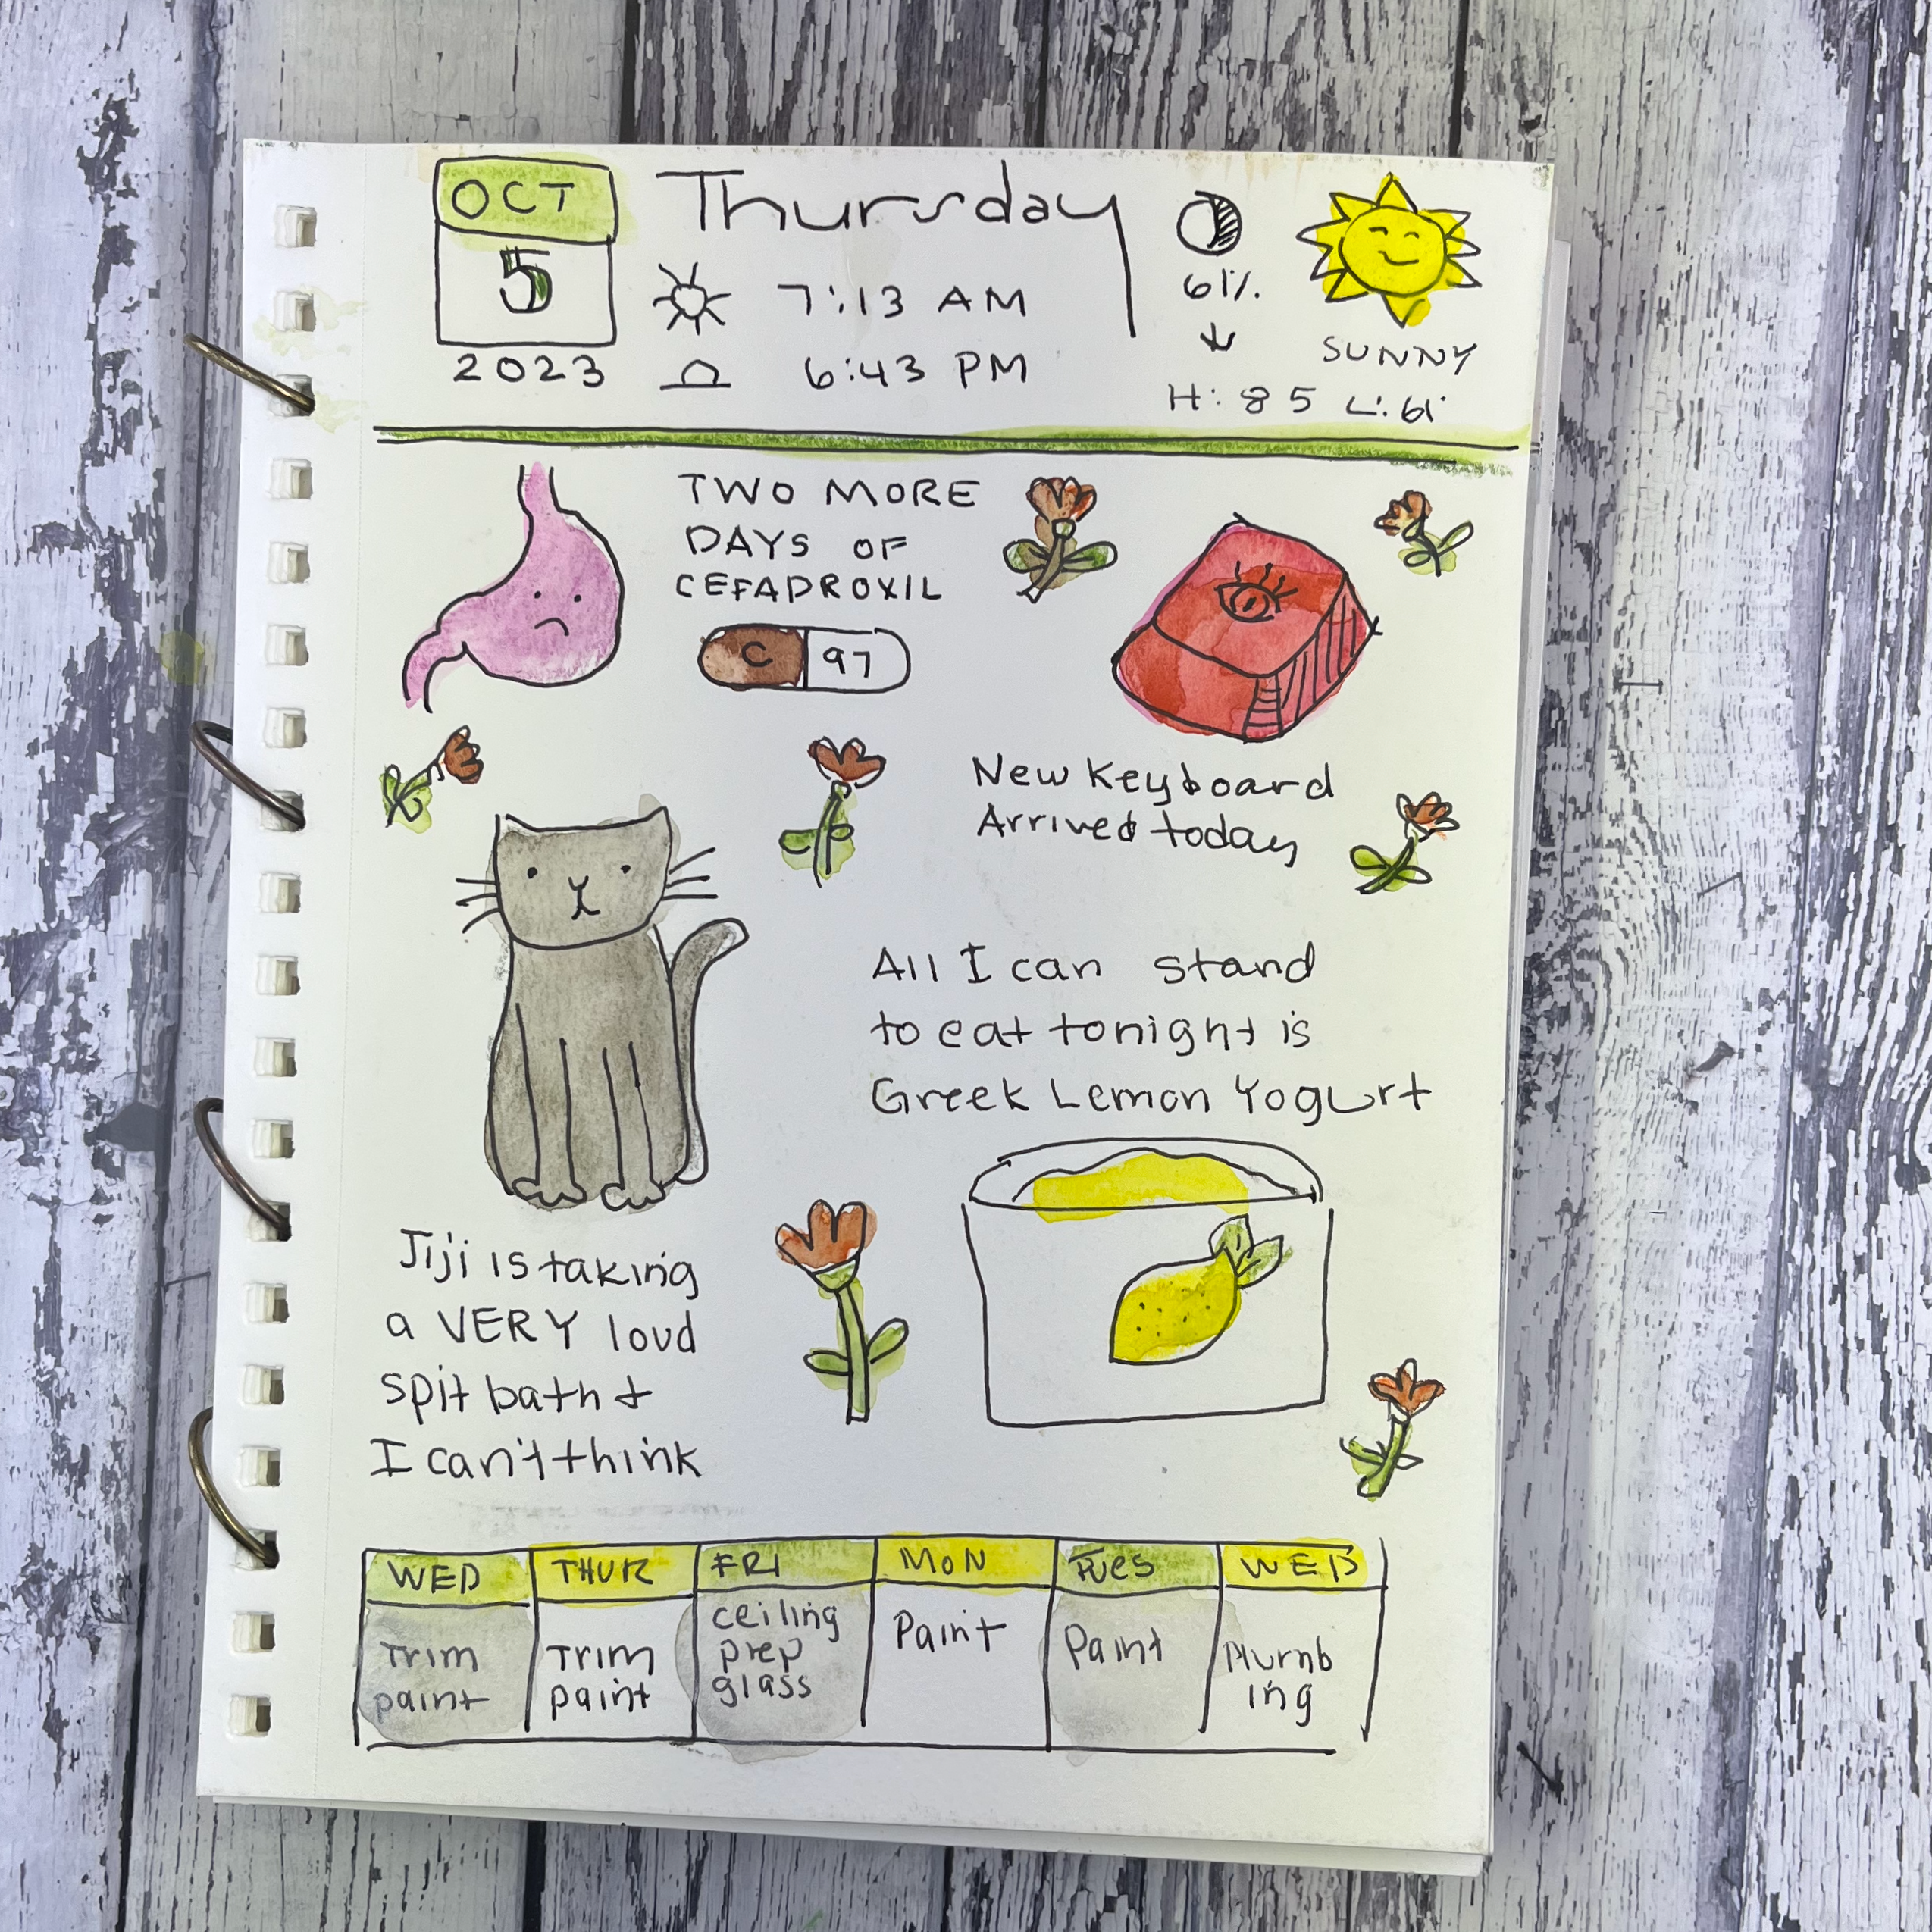 OCT
5
2023
Thursday
7:13 AM
6:43 PM
61%
SUNNY
H: 85 L: 61
TWO MORE
DAYS OF
CEFADROXIL
C 97
New Keyboard
Arrived today
All I can stand
to eat tonight is
Greek Lemon Yogurt
Jiji is taking
a VERY loud
spit bath +
I can't think
WED THUR FRI MON TUES WED
Trim
paint
Trim
paint
ceiling
prep
glass
Paint
Paint
Plumb
ing